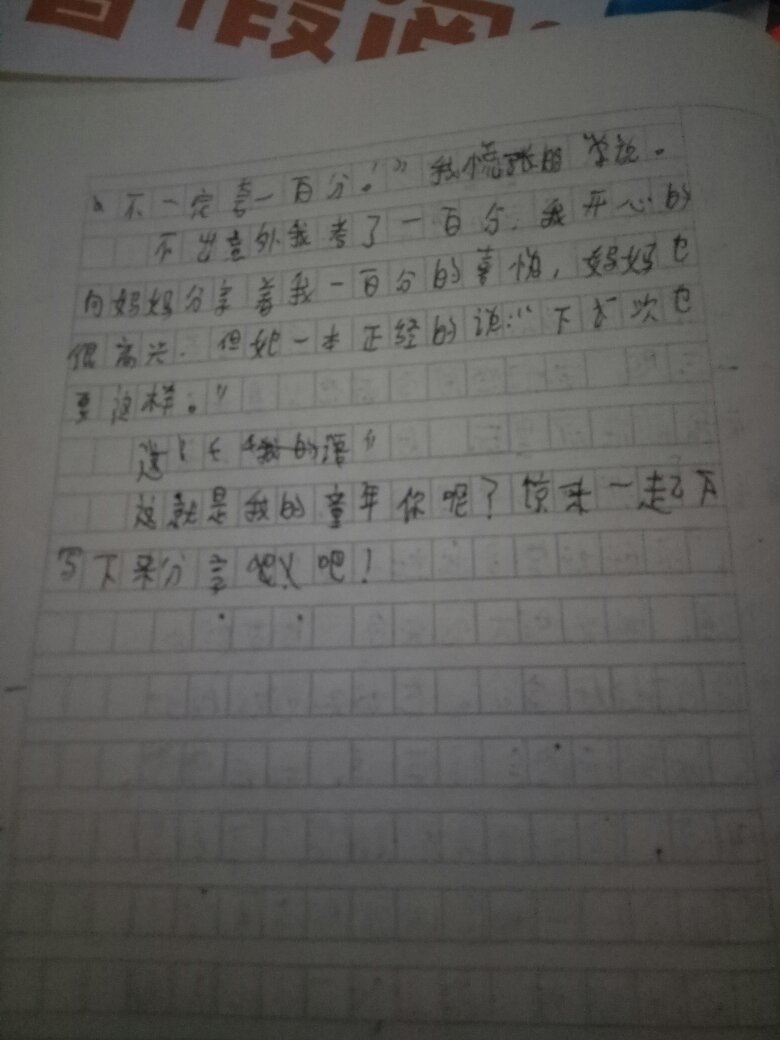 暑假阅
“不一定考一百分！”我慌张的掌说。
不出意外我考了一百分，我开心的
向妈妈分享着我一百分的喜悦，妈妈也
很高兴．但她一本正经的说：“下次也
要这样。”
这
这就是我的童年你呢？快来一起
写下来分享吧！